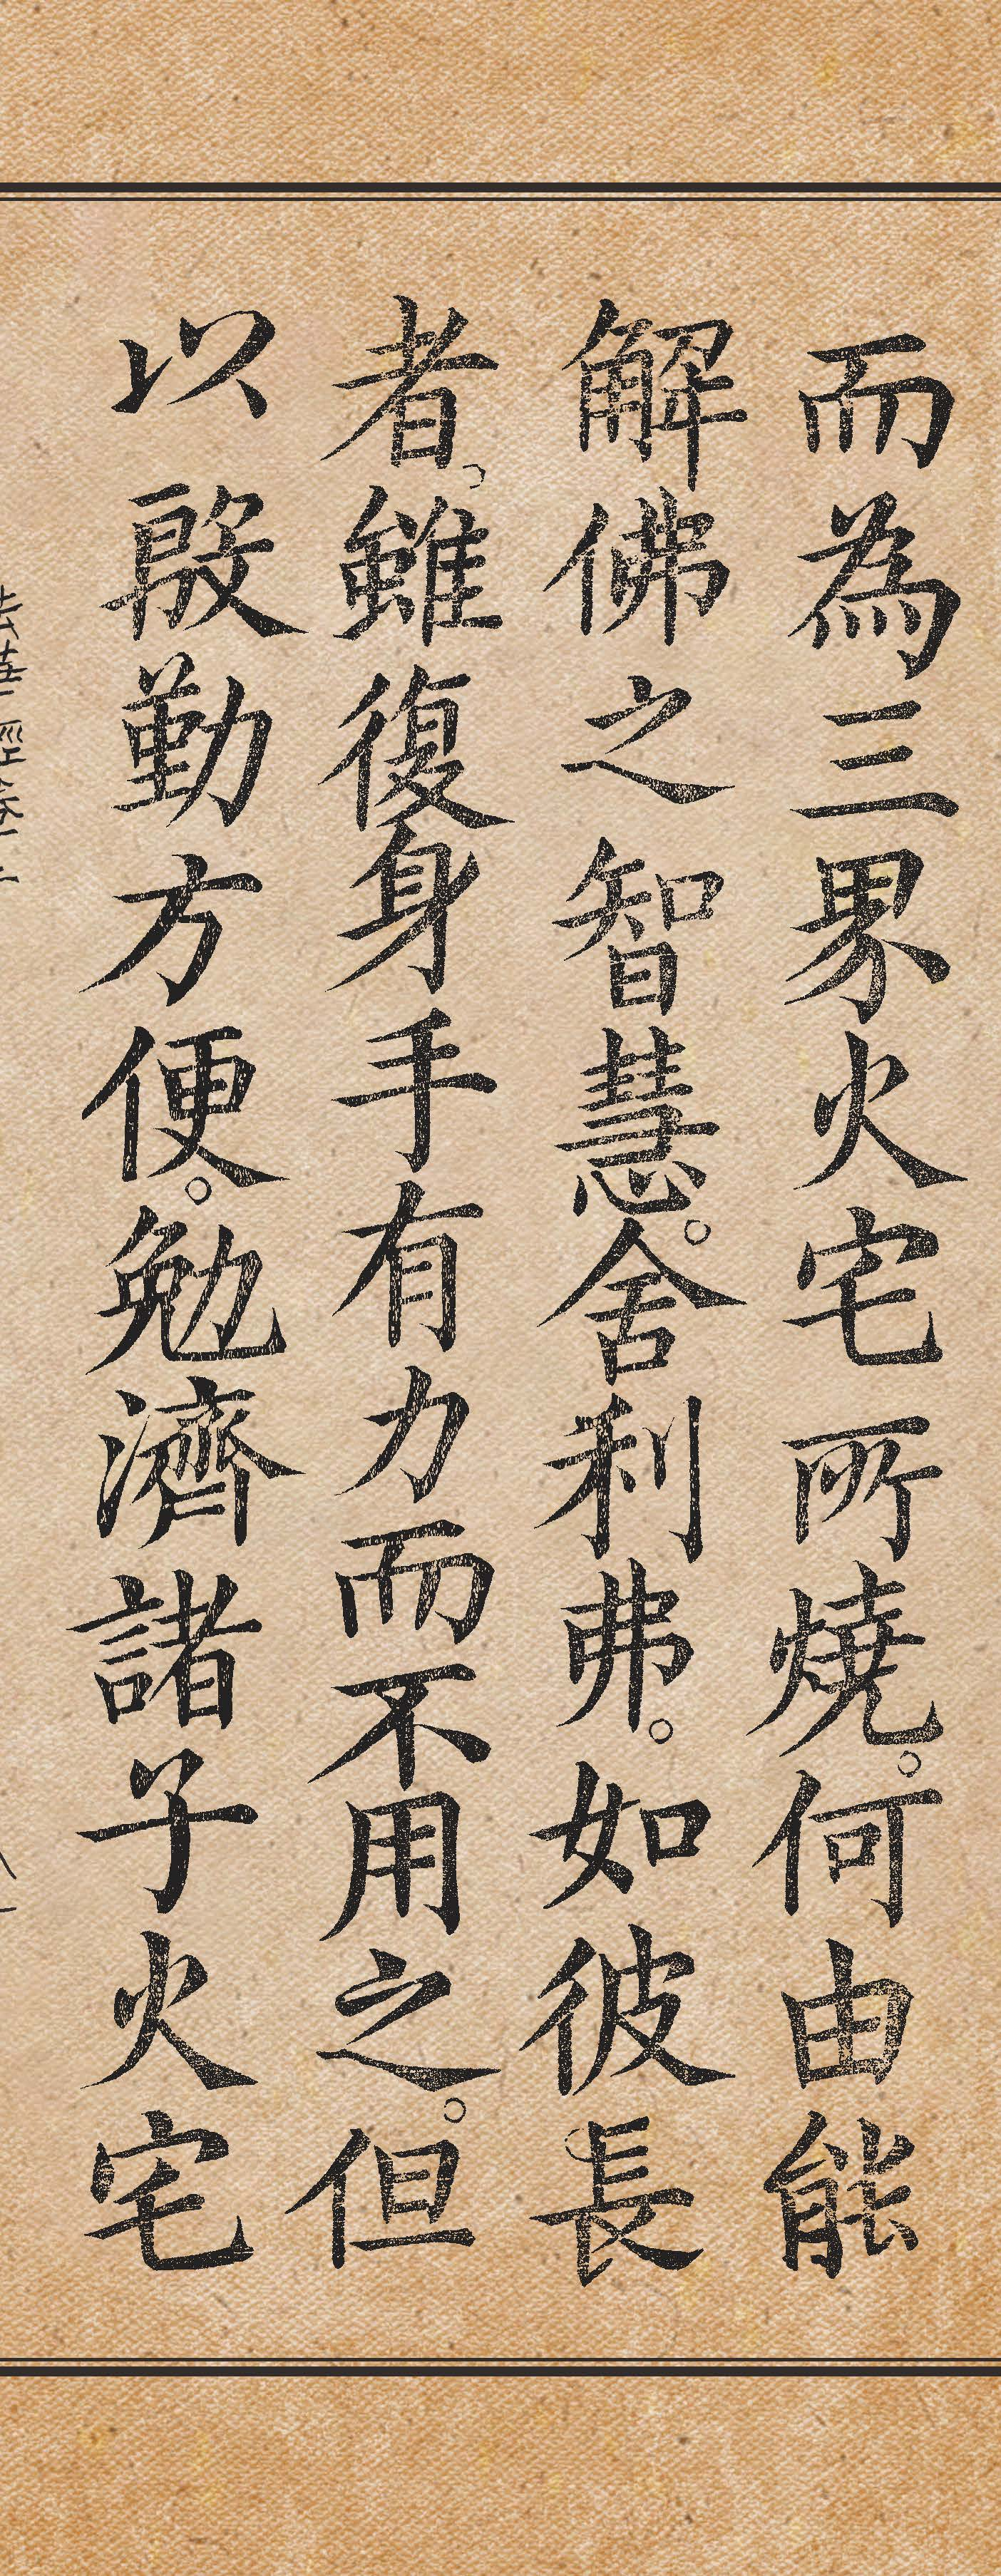 而為三界火宅所燒。何由能
解佛之智慧。舍利弗。如彼長
者。雖復身手有力而不用之。但
以殷勤方便。勉濟諸子火宅